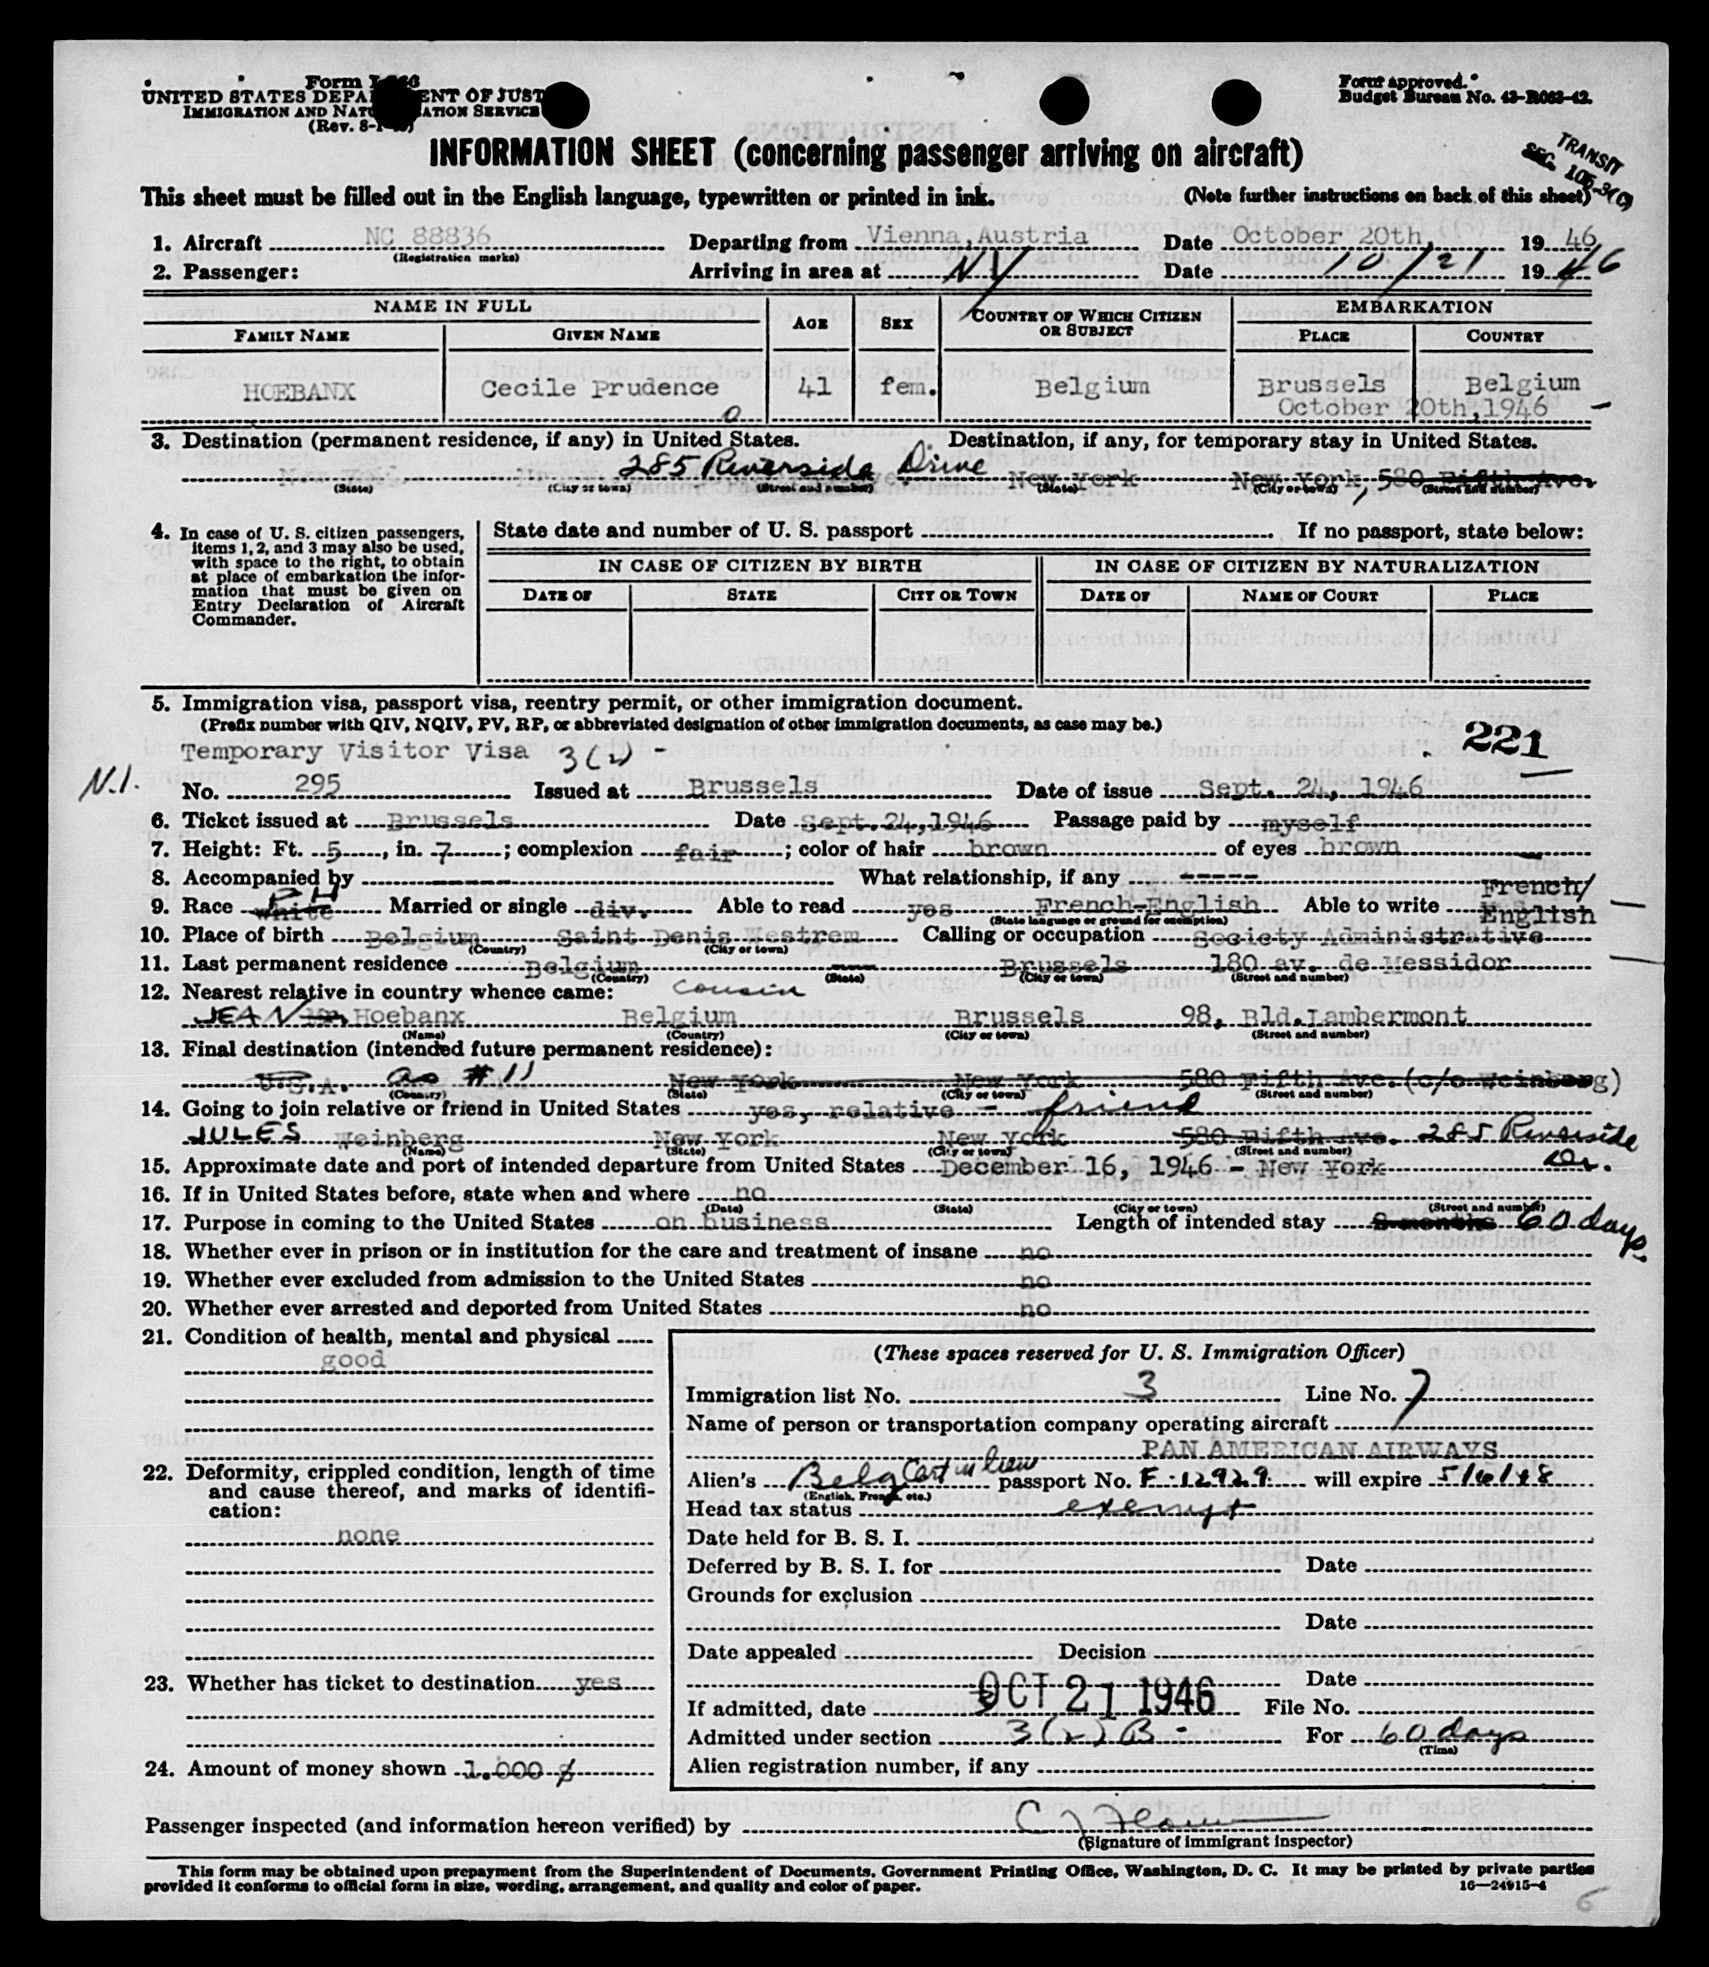 Form I-466
UNITED STATES DEPARTMENT OF JUSTICE
IMMIGRATION AND NATURALIZATION SERVICE
(Rev. 8-1-45)
Form approved.
Budget Bureau No. 43-R063-42.
TRANSIT
SEC. 105-3(C)
INFORMATION SHEET (concerning passenger arriving on aircraft)
This sheet must be filled out in the English language, typewritten or printed in ink. (Note further instructions on back of this sheet)
1. Aircraft NC 88836 Departing from Vienna, Austria Date October 20th, 1946
(Registration marks)
2. Passenger: Arriving in area at NY Date 10/21 1946
NAME IN FULL AGE SEX COUNTRY OF WHICH CITIZEN OR SUBJECT EMBARKATION
FAMILY NAME GIVEN NAME PLACE COUNTRY
HOEBANX Cecile Prudence 41 fem. Belgium Brussels Belgium
October 20th, 1946
3. Destination (permanent residence, if any) in United States. Destination, if any, for temporary stay in United States.
285 Riverside Drive New York New York, 580 Fifth Ave.
(State) (City or town) (Street and number) (State) (City or town) (Street and number)
4. In case of U. S. citizen passengers, items 1, 2, and 3 may also be used, with space to the right, to obtain at place of embarkation the information that must be given on Entry Declaration of Aircraft Commander.
State date and number of U. S. passport If no passport, state below:
IN CASE OF CITIZEN BY BIRTH IN CASE OF CITIZEN BY NATURALIZATION
DATE OF STATE CITY OR TOWN DATE OF NAME OF COURT PLACE
5. Immigration visa, passport visa, reentry permit, or other immigration document.
(Prefix number with QIV, NQIV, PV, RP, or abbreviated designation of other immigration documents, as case may be.)
221
Temporary Visitor Visa 3(2) -
N.I.
No. 295 Issued at Brussels Date of issue Sept. 24, 1946
6. Ticket issued at Brussels Date Sept. 24, 1946 Passage paid by myself
7. Height: Ft. 5, in. 7; complexion fair; color of hair brown of eyes brown
8. Accompanied by ------ What relationship, if any -----
9. Race white Married or single div. Able to read yes French-English Able to write yes French/English
(State language or ground for exemption)
10. Place of birth Belgium Saint Denis Westrem Calling or occupation Society Administrative
(Country) (City or town)
11. Last permanent residence Belgium --- Brussels 180 av. de Messidor
(Country) (State) (City or town) (Street and number)
12. Nearest relative in country whence came: cousin
JEAN Mr. Hoebanx Belgium Brussels 98, Bld. Lambermont
(Name) (Country) (City or town) (Street and number)
13. Final destination (intended future permanent residence):
U.S.A. as # 11 New York New York 580 Fifth Ave. (c/o Weinberg)
(Country) (State) (City or town) (Street and number)
14. Going to join relative or friend in United States yes, relative - friend
JULES Weinberg New York New York 580 Fifth Ave. 285 Riverside Dr.
(Name) (State) (City or town) (Street and number)
15. Approximate date and port of intended departure from United States December 16, 1946 - New York
16. If in United States before, state when and where no
(Date) (State) (City or town) (Street and number)
17. Purpose in coming to the United States on business Length of intended stay 2 months 60 days
18. Whether ever in prison or in institution for the care and treatment of insane no
19. Whether ever excluded from admission to the United States no
20. Whether ever arrested and deported from United States no
21. Condition of health, mental and physical
good
22. Deformity, crippled condition, length of time and cause thereof, and marks of identification:
none
23. Whether has ticket to destination yes
24. Amount of money shown 1.000 $
(These spaces reserved for U. S. Immigration Officer)
Immigration list No. 3 Line No. 7
Name of person or transportation company operating aircraft
PAN AMERICAN AIRWAYS
Alien's Belg Cert in lieu passport No. F-12929 will expire 5/6/48
(English, French, etc.)
Head tax status exempt
Date held for B. S. I.
Deferred by B. S. I. for Date
Grounds for exclusion
Date
Date appealed Decision
Date
If admitted, date OCT 21 1946 File No.
Admitted under section 3(2) B - For 60 days
(Time)
Alien registration number, if any
Passenger inspected (and information hereon verified) by
(Signature of immigrant inspector)
This form may be obtained upon prepayment from the Superintendent of Documents, Government Printing Office, Washington, D. C. It may be printed by private parties
provided it conforms to official form in size, wording, arrangement, and quality and color of paper. 16—24915-4
6